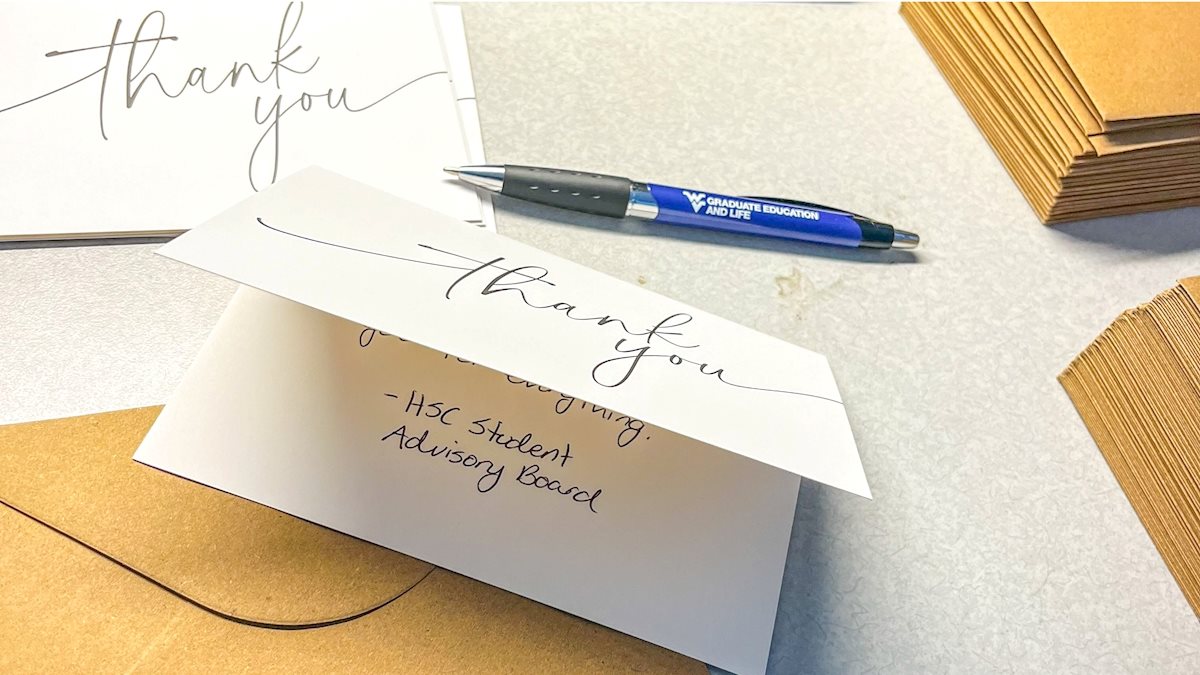 thank
you
GRADUATE EDUCATION
AND LIFE
thank
you
everything.
-HSC Student
Advisory Board